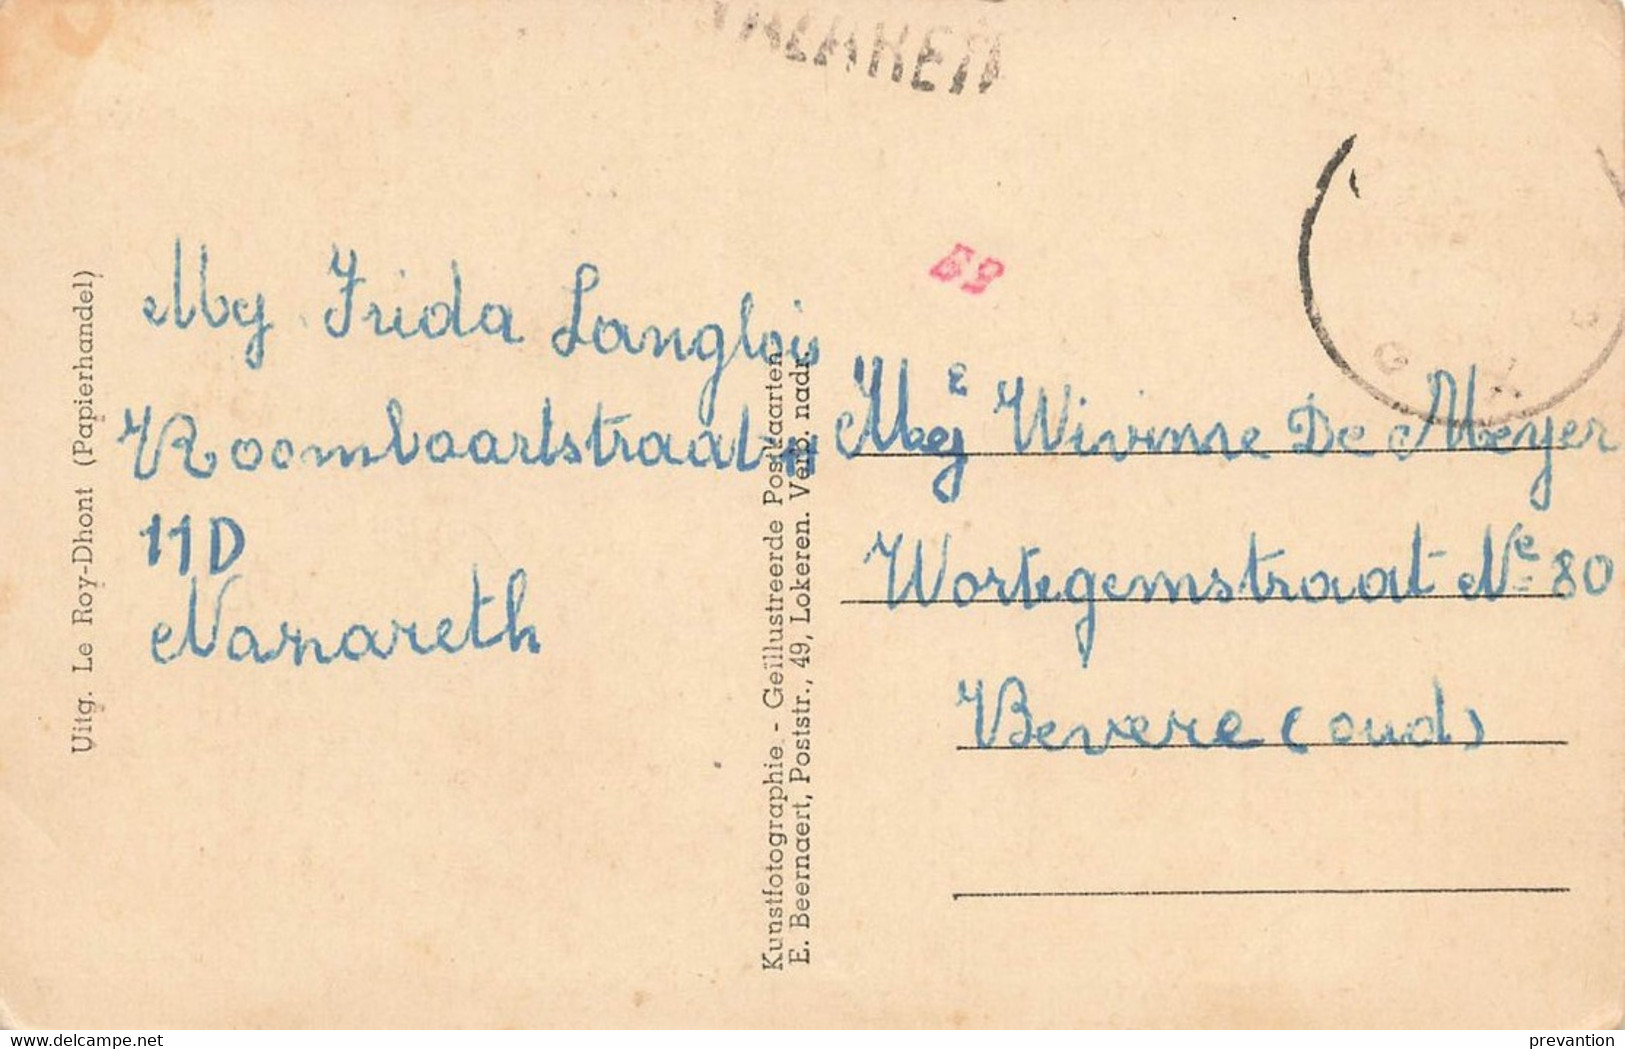 Uitg. Le Roy-Dhont (Papierhandel)
Mej Frida Langlois
Roombaartstraat
11D
Nazareth
Kunstfotographie. - Geïllustreerde Postkaarten
E. Beernaert, Poststr., 49, Lokeren. Verb. nadr.
59
Mej Wivinne De Meyer
Wortegemstraat Nº 80
Bevere (oud)
delcampe.net
prevantion